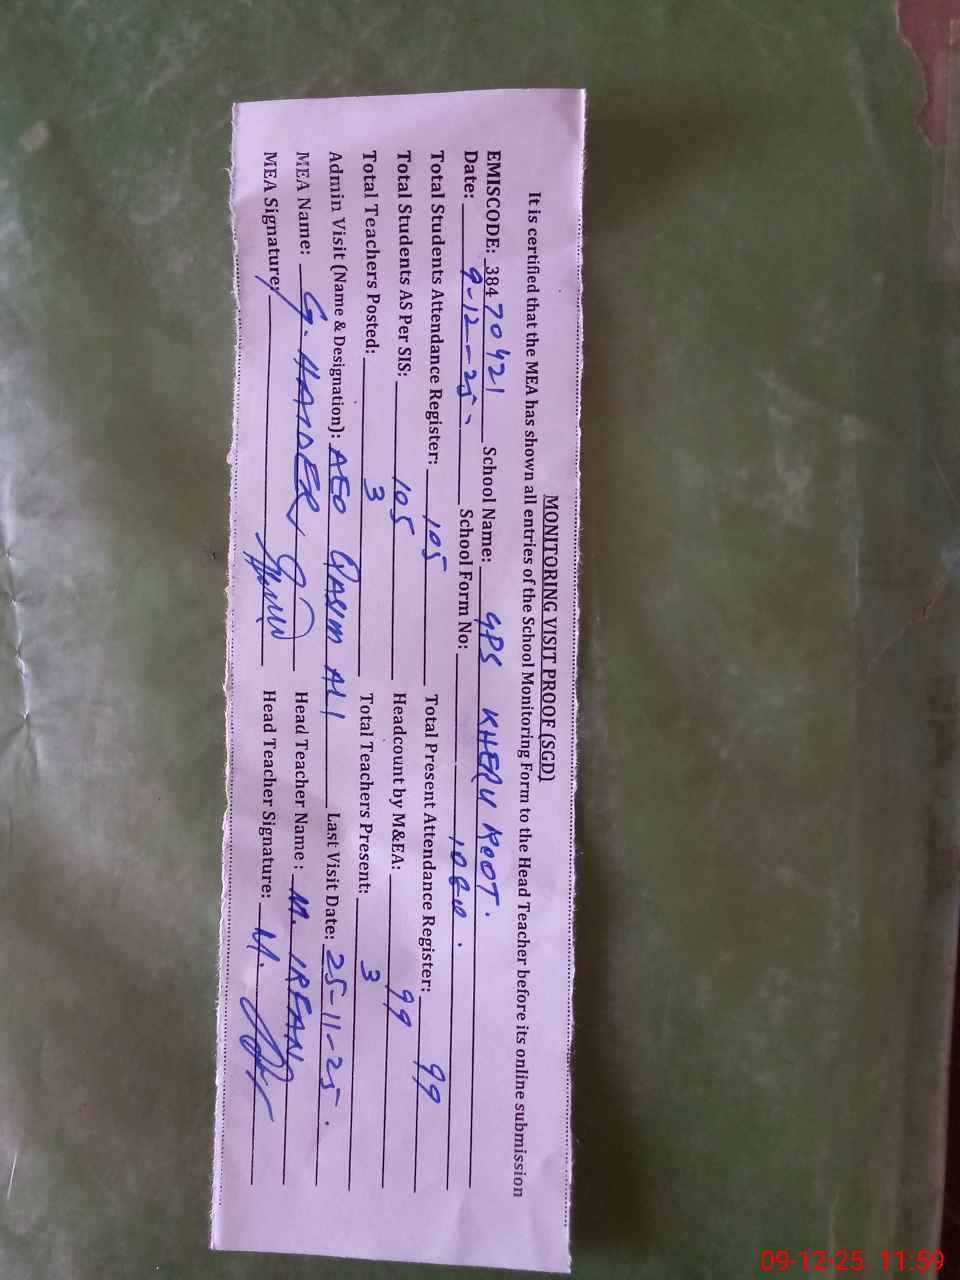 MONITORING VISIT PROOF (SGD)
It is certified that the MEA has shown all entries of the School Monitoring Form to the Head Teacher before its online submission
EMISCODE: 38470421 School Name: GPS KHERU KOOT.
Date: 9-12-25 School Form No:
Total Students Attendance Register: 105 Total Present Attendance Register: 99
Total Students AS Per SIS: 105 Headcount by M&EA: 99
Total Teachers Posted: 3 Total Teachers Present: 3
Admin Visit (Name & Designation): AEO QASIM ALI Last Visit Date: 25-11-25.
MEA Name: G. HAIDER Head Teacher Name: M. IRFAN
MEA Signature: Head Teacher Signature: M.
09-12-25 11:59